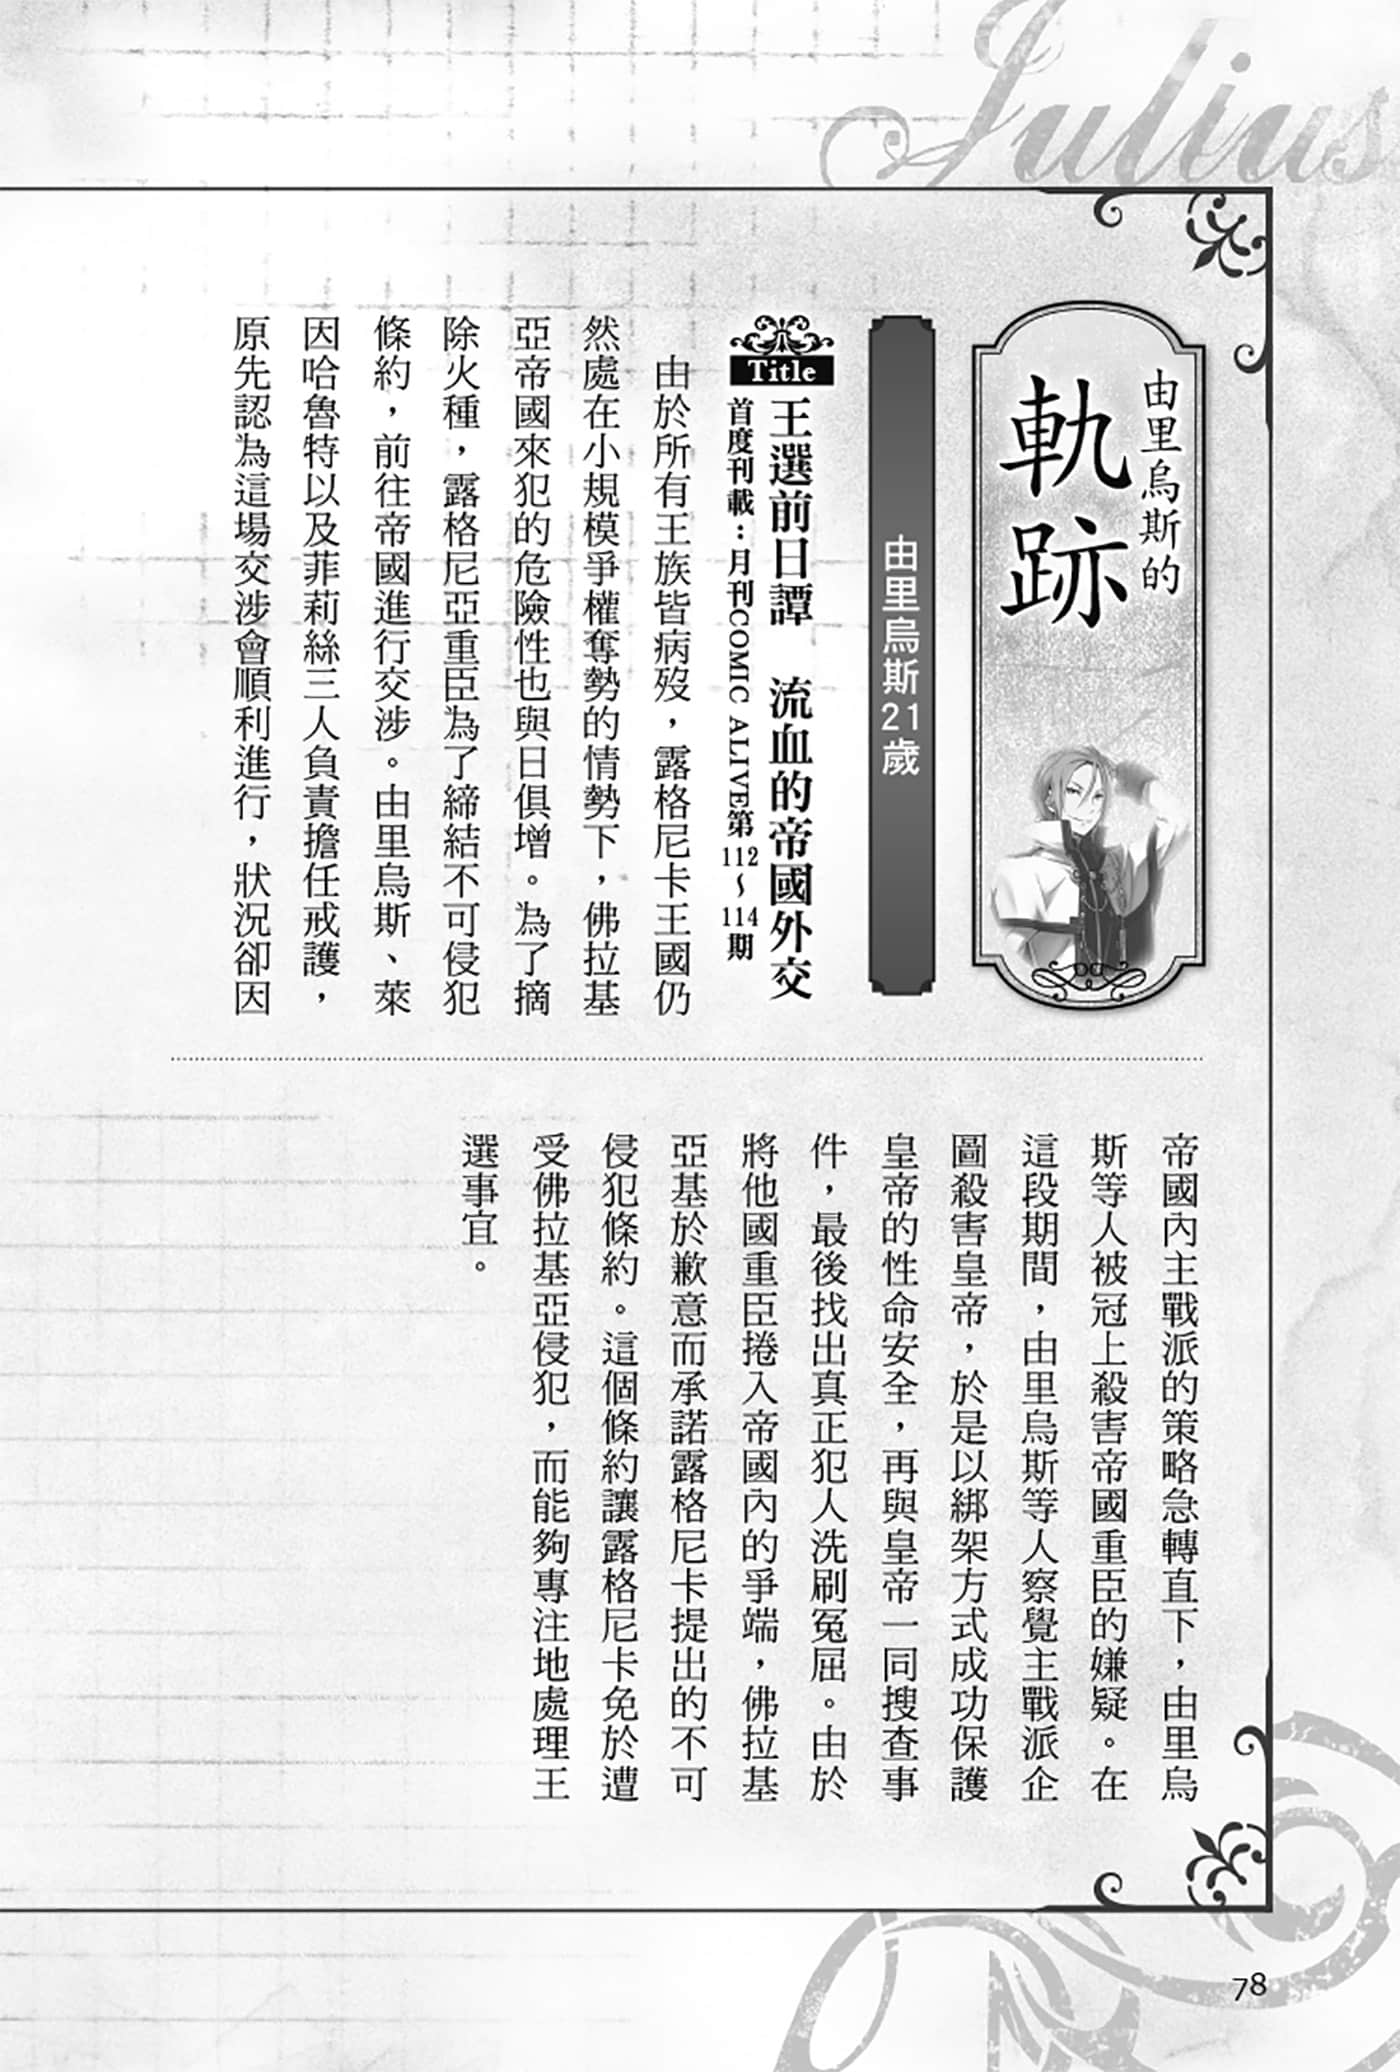 Julius
由里烏斯的
軌跡
由里烏斯21歲
Title
王選前日譚　流血的帝國外交
首度刊載：月刊COMIC ALIVE第112～114期
由於所有王族皆病歿，露格尼卡王國仍
然處在小規模爭權奪勢的情勢下，佛拉基
亞帝國來犯的危險性也與日俱增。為了摘
除火種，露格尼亞重臣為了締結不可侵犯
條約，前往帝國進行交涉。由里烏斯、萊
因哈魯特以及菲莉絲三人負責擔任戒護，
原先認為這場交涉會順利進行，狀況卻因
帝國內主戰派的策略急轉直下，由里烏
斯等人被冠上殺害帝國重臣的嫌疑。在
這段期間，由里烏斯等人察覺主戰派企
圖殺害皇帝，於是以綁架方式成功保護
皇帝的性命安全，再與皇帝一同搜查事
件，最後找出真正犯人洗刷冤屈。由於
將他國重臣捲入帝國內的爭端，佛拉基
亞基於歉意而承諾露格尼卡提出的不可
侵犯條約。這個條約讓露格尼卡免於遭
受佛拉基亞侵犯，而能夠專注地處理王
選事宜。
78